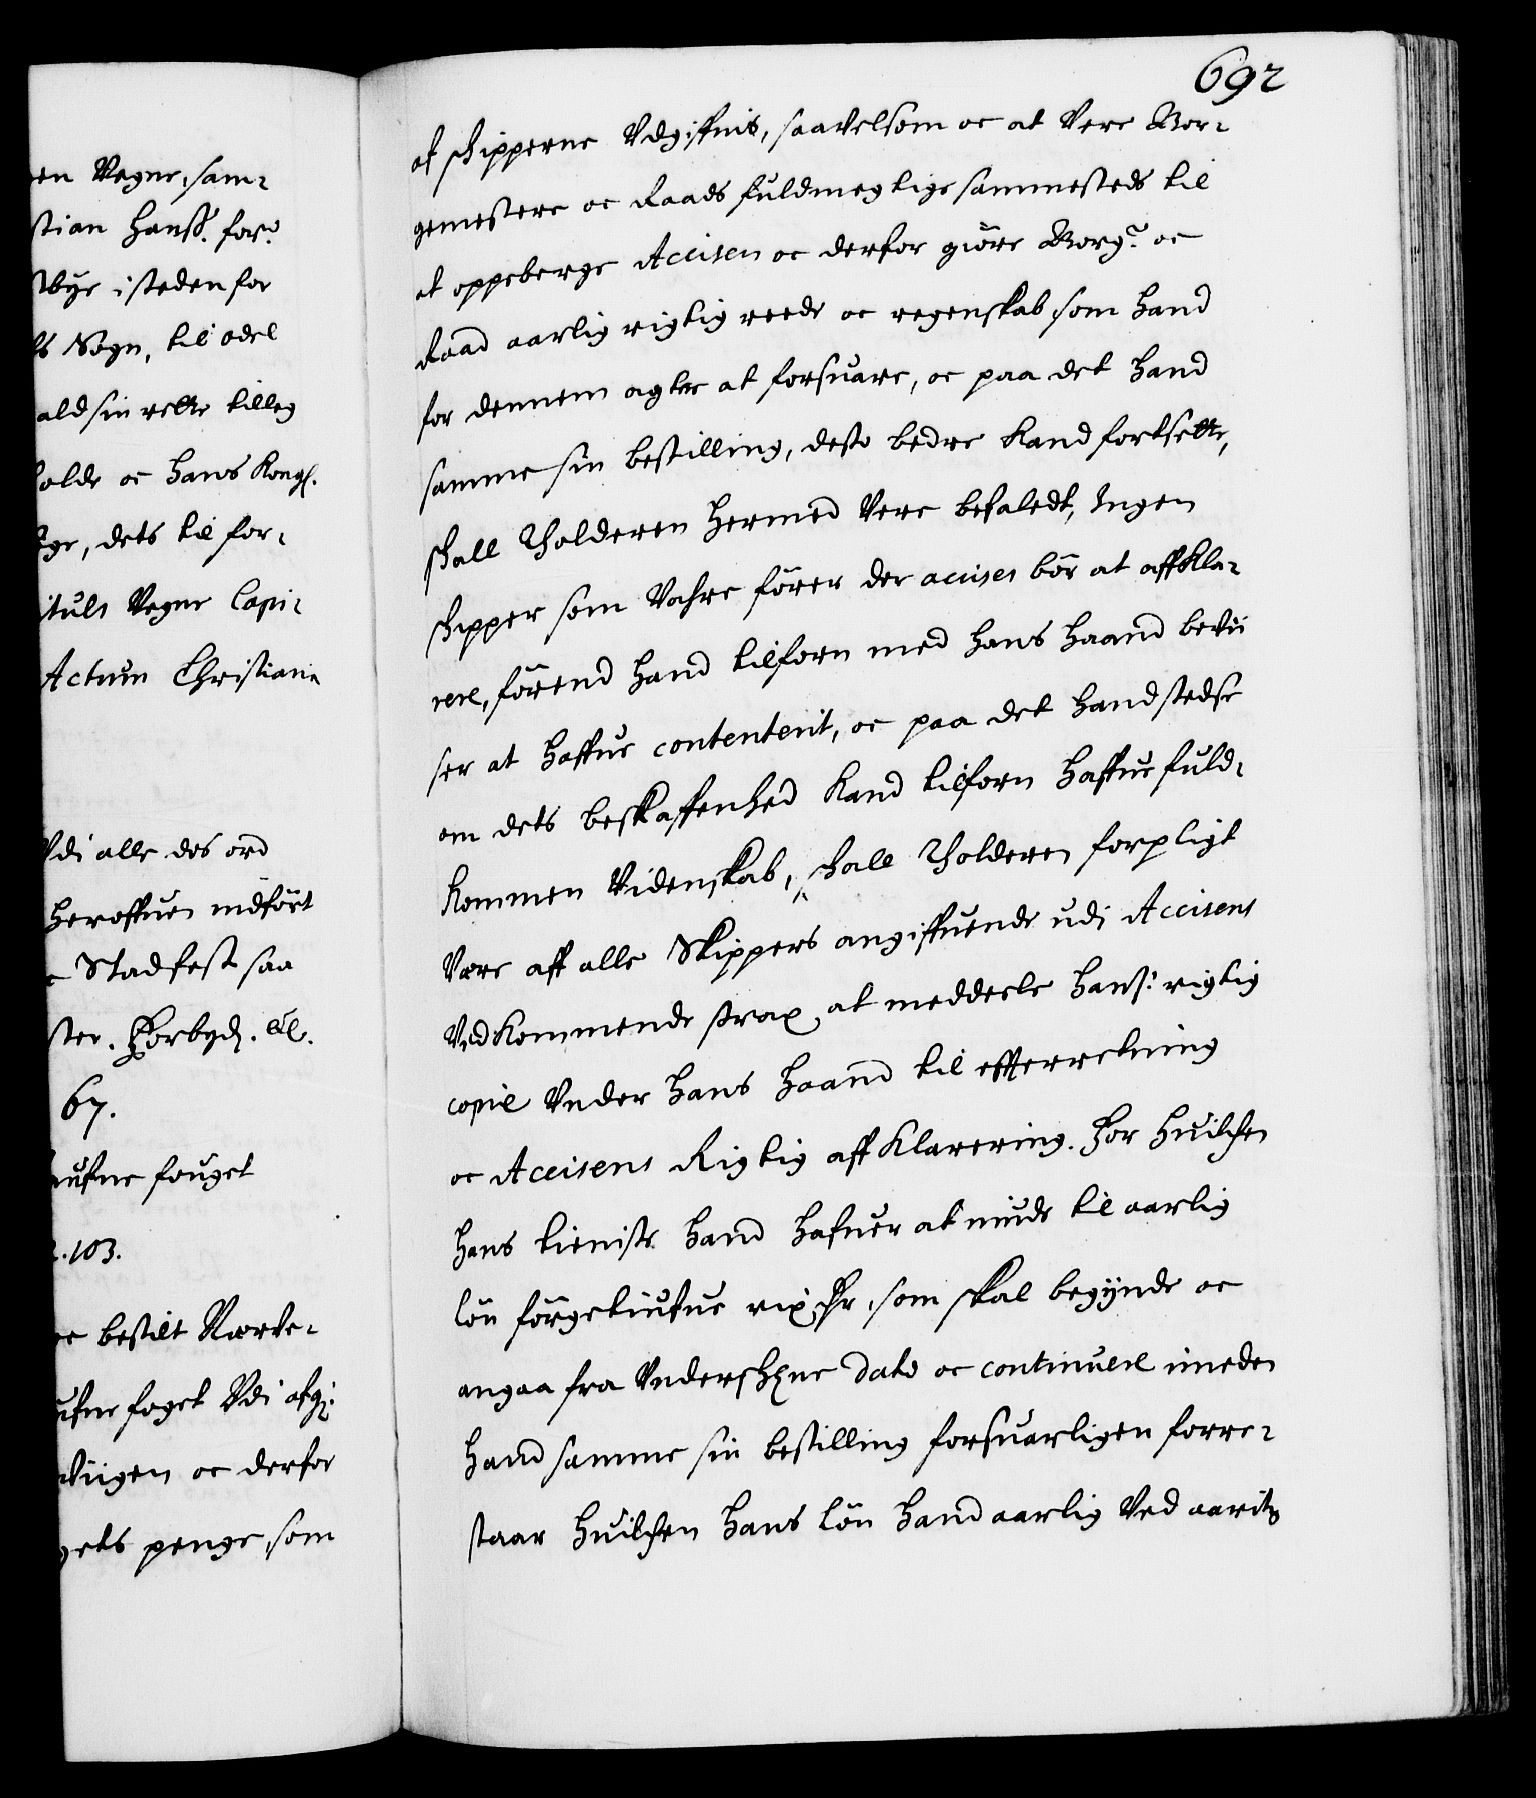 en Vegne, sam-
stian Hanß. for:
bÿe i steden for
ls Sogn, til odel
ald sin rette tilleg
holde oc hans Kongl.
ge, dets til for-
ituls Vegne Capi-
Actum Christian
Vdi alle des ord
heroffuen indfört
e Stadfest saa
ster. Forbyd. etc.
67.
ufne fouget
103.
oc bestilt
ufne foget Vdi
vigen oc derfor
gets penge, som
692
af schipperne Vdgiffuis, saavelsom oc at Vere Bor-
gemestere oc Raads fuldmegtige sammesteds til
at oppeberge Accisen oc derfor giöre Borg: oc
Raad aarlig rigtig reede oc regenskab, som hand
for dennem agter at forsuare, oc paa det hand
samme sin bestilling, desto bedre kand fortsette,
schall Tholderen hermed Vere befaledt, Ingen
schipper som Vahre förer der accises bör at affkla-
rere, förend hand tilforn med hans haand bevii
ser at haffue contenterit, oc paa det hand stedse
om dets beskaffenhed kand tilforn haffue fuld-
kommen Videnskab, schall Tholderen forpligt
Vere aff alle Skippers angiffuende udi Accisens
Vedkommende strax at meddeele hans: rigtig
copie Vnder hans haand til efterretning
oc Accisens Rigtig affklarering. For huilchen
hans tieniste hand hafuer at niude til aarlig
lön förgetiufue rix dr, som skal begÿnde oc
angaa fra Vnderschrefne dato oc continuere imeden
hand samme sin bestilling forsuarligen forre-
staar huilchen hans lön hand aarlig Ved aarits